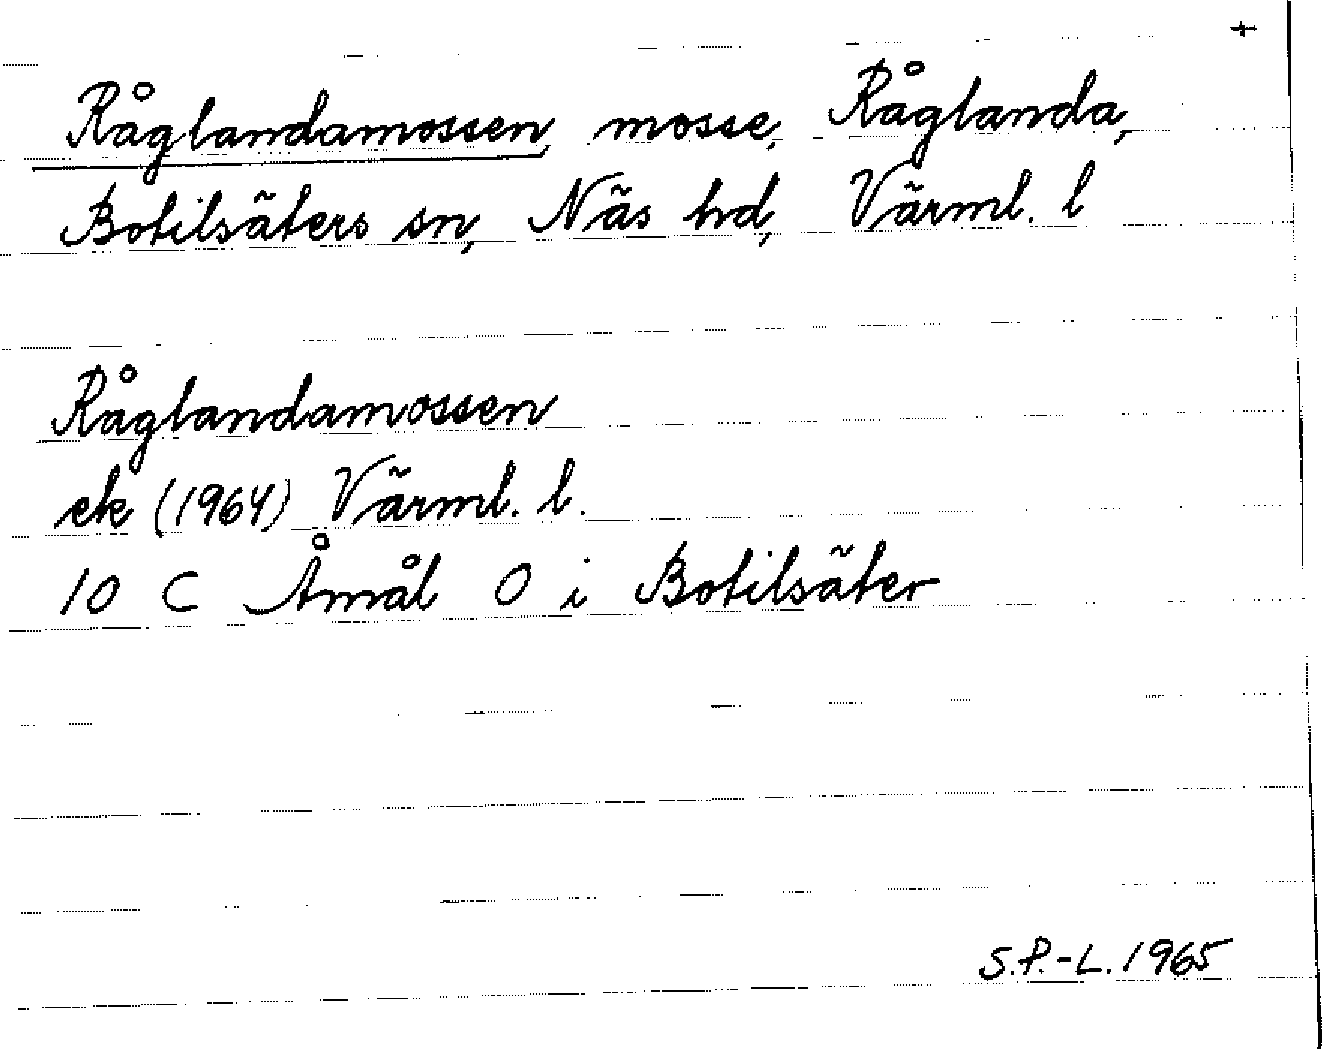 +
Råglandamossen, mosse, Råglanda,
Botilsäters sn, Näs hd, Värml. l
Råglandamossen
ek (1964) Värml. l.
10 C Åmål O i Botilsäter
S.P.-L. 1965